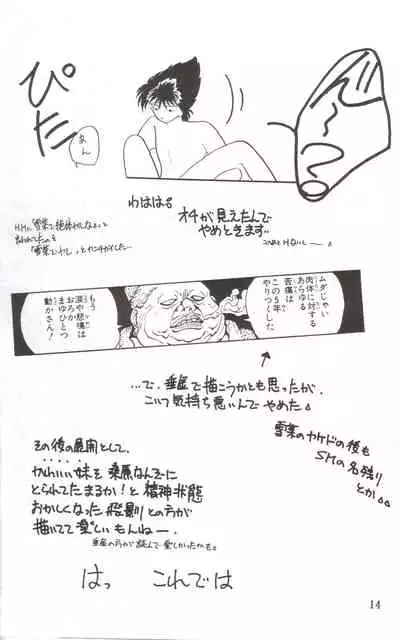 ぴた
ん？
あん
わはは。
オチが見えたんで
やめときます…
ムダじゃい
肉体に対する
あらゆる
苦痛は
この5年
やりつくした
もう
涙や悲鳴は
おろか
まゆひとつ
動かさん！
…で、垂金で描こうかとも思ったが、
こいつ気持ち悪いんでやめた。
雪菜のヤケドの後も
SMの名残り
とか。
その後の展開として、
かわいい妹を桑原なんぞに
とられてたまるか！と精神状態
おかしくなった飛影との方が
描いてて楽しいもんねー。
はっ　これでは
14